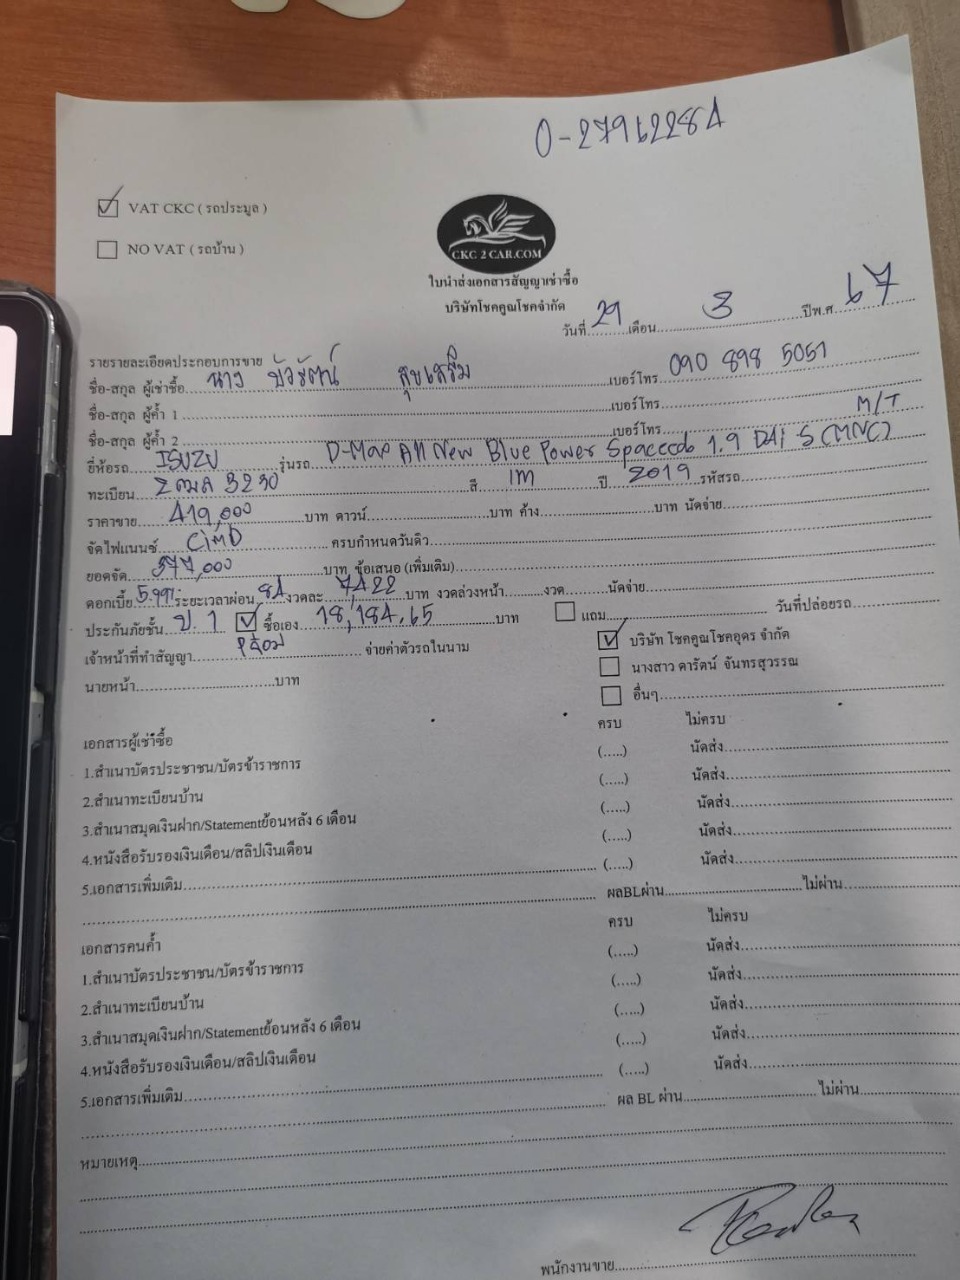 0-27962284
VAT CKC ( รถประมูล )
NO VAT ( รถบ้าน )
CKC 2 CAR.COM
ใบนำส่งเอกสารสัญญาเช่าซื้อ
บริษัทโชคคูณโชคจำกัด
วันที่ 29 เดือน 3 ปีพ.ศ. 67
รายรายละเอียดประกอบการขาย
ชื่อ-สกุล ผู้เช่าซื้อ นาง บัวรัตน์ สุขเสริม เบอร์โทร 090 898 5051
ชื่อ-สกุล ผู้ค้ำ 1 เบอร์โทร
ชื่อ-สกุล ผู้ค้ำ 2 เบอร์โทร M/T
ยี่ห้อรถ ISUZU รุ่นรถ D-Max All New Blue Power Spacecab 1.9 DAi S (MNC)
ทะเบียน 2ฒล 3230 สี เทา ปี 2019 รหัสรถ
ราคาขาย 419,000 บาท ดาวน์ บาท ค้าง บาท นัดจ่าย
จัดไฟแนนซ์ CiMB ครบกำหนดวันดิว
ยอดจัด 377,000 บาท ข้อเสนอ (เพิ่มเติม)
ดอกเบี้ย 5.99% ระยะเวลาผ่อน 84 งวดละ 7,422 บาท งวดล่วงหน้า งวด นัดจ่าย
ประกันภัยชั้น ป. 1 ซื้อเอง 18,184.65 บาท แถม วันที่ปล่อยรถ
เจ้าหน้าที่ทำสัญญา จ่ายค่าตัวรถในนาม บริษัท โชคคูณโชคอุดร จำกัด
นางสาว ดารัตน์ จันทรสุวรรณ
นายหน้า บาท อื่นๆ
เอกสารผู้เช่าซื้อ ครบ ไม่ครบ
1.สำเนาบัตรประชาชน/บัตรข้าราชการ (.....) นัดส่ง
2.สำเนาทะเบียนบ้าน (.....) นัดส่ง
3.สำเนาสมุดเงินฝาก/Statementย้อนหลัง 6 เดือน (.....) นัดส่ง
4.หนังสือรับรองเงินเดือน/สลิปเงินเดือน (.....) นัดส่ง
5.เอกสารเพิ่มเติม (.....) นัดส่ง
ผลBLผ่าน ไม่ผ่าน
เอกสารคนค้ำ ครบ ไม่ครบ
1.สำเนาบัตรประชาชน/บัตรข้าราชการ (.....) นัดส่ง
2.สำเนาทะเบียนบ้าน (.....) นัดส่ง
3.สำเนาสมุดเงินฝาก/Statementย้อนหลัง 6 เดือน (.....) นัดส่ง
4.หนังสือรับรองเงินเดือน/สลิปเงินเดือน (.....) นัดส่ง
5.เอกสารเพิ่มเติม (.....) นัดส่ง
ผล BL ผ่าน ไม่ผ่าน
หมายเหตุ
พนักงานขาย